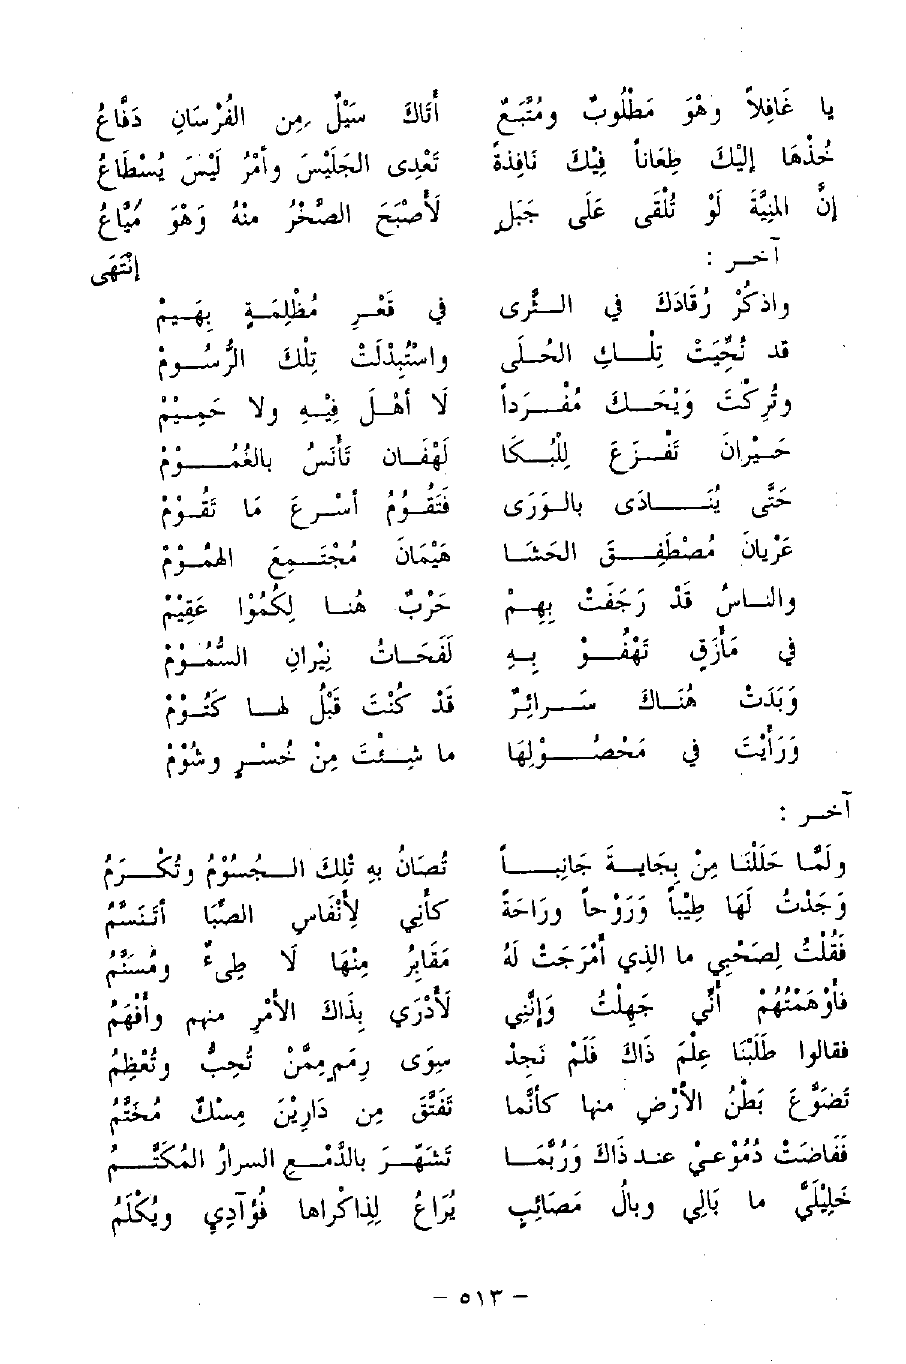 يا غَافِلاً وهْوَ مَطْلُوبٌ ومُتَّبَعٌ أَتَاكَ سَيْلٌ مِن الفُرْسَانِ دَفَّاعُ
خُذْهَا إِلَيْكَ طِعَاناً فِيْكَ نَافِذَةً تَعْدِى الجَلَيْسَ وأَمْرُ لَيْسَ يُسْطَاعُ
إنَّ المَنِيَّةَ لَوْ تُلْقَى عَلَى جَبَلٍ لَأَصْبَحَ الصُّخْرُ مِنْهُ وَهْوَ مَيَّاعُ
إنْتَهَى
آخــر :
واذكُرْ رُقَادَكَ في الــثَّرى في قَعْــرِ مُظْلِمَــةٍ بِهَــيمْ
قد نُحِّيَتْ تِلْــكِ الحُــلَى واسْتُبْدِلَتْ تِلْكَ الرُّسُــومْ
وتُرِكْتَ وَيْحَــكَ مُفْــرَداً لَا أَهْــلَ فِيْــهِ ولا حَمِــيْمْ
حَــيْرانَ تَفْــزَع لِلْبُــكَا لَهْفَــان تَأْنَسُ بالغُمُــــوْمْ
حَتَّى يُنَــــادَى بالــوَرَى فَتَقُــوُمُ أَسْــرعَ مَا تَقُــوْمْ
عَرْيانَ مُصْطَفِــقَ الحَشَــا هَيْمَانَ مُجْتَــمِعَ الهمُــوْمْ
والنــاسُ قَدْ رَجَفَتْ بِهِــمْ حَرْبٌ هُنــا لِكُمُوْا عَقِيْمْ
في مَأْزَقٍ تَهْفُــوْ بِــهِ لَفَحَــاتُ نِيْرانِ السَّمُــوْمْ
وَبَدَتْ هُنَــاكَ سَــرائِــرٌ قَدْ كُنْتَ قَبْلُ لهــا كَتُــوْمْ
وَرَأَيْتَ في مَحْصُــوْلِهَا ما شِــئْتَ مِنْ خُسْــرٍ وشُوْمْ
آخــر :
ولَمَّا حَلَلْنَــا مِنْ بِجَايــةَ جَانِبــــاً تُصَانُ بهِ تْلِكَ الــجُسُوْمُ وتُكْــرَمُ
وَجَدْتُ لَهَا طِيْباً وَرَوْحاً ورَاحَةً كأَنِي لِأَنْفَاسِ الصبَّا أتَنَسَّمُ
فَقُلْتُ لِصَحْبِي ما الذِي أَمْرَجَتْ لَهُ مَقَابِرُ مِنْهَا لَا طِىءٌ ومُسَنَّمُ
فأوْهَمْتُهُمْ أَنَّي جَهِلْتُ وَإنَّنِي لَأَدْرَي بِذَاكَ الأَمْرِ منهم وأَفْهَمُ
فقالوا طَلَبْنَا عِلْمَ ذَاكَ فَلَمْ نَجِدْ سِوَى رِمَمٍ مِمَّنْ تُحِبُّ وتُعْظِمُ
تَضَوَّعَ بَطْنُ الأَرْضِ منها كأنَّما تَفَتَّقَ مِن دَارِيْنَ مِسْكٌ مُخَتَّمُ
فَفَاضَتْ دُمُوْعيْ عنــد ذَاكَ وَرُبَّمَــا تَشَهّــرَ بالدَّمْــعِ السرارُ المُكَتَّــمُ
خَلِيْلَيَّ ما بَالِي وبالُ مَصَائِبٍ يُرَاعُ لِذِاكْراها فُوْآدِي ويُكْلَمُ
– ٥١٣ –